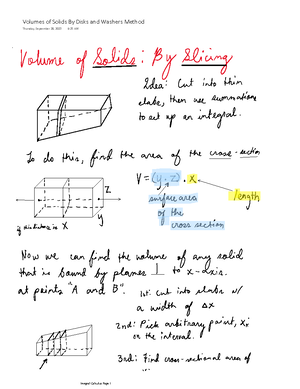 Volumes of Solids By Disks and Washers Method
Volume of Solids: By Slicing
Idea: Cut into thin
slabs, then use summations
to set up an integral.
To do this, find the area of the cross-section
V = (y·z) · x
surface area
of the
cross section
length
z
y
if this distance is x
Now we can find the volume of any solid
that is bound by planes ⊥ to x-axis.
at points "A and B".
1st: Cut into slabs w/
a width of Δx
2nd: Pick arbitrary point, xi
on the interval.
3rd: Find cross-sectional area of
Integral Calculus Page 1